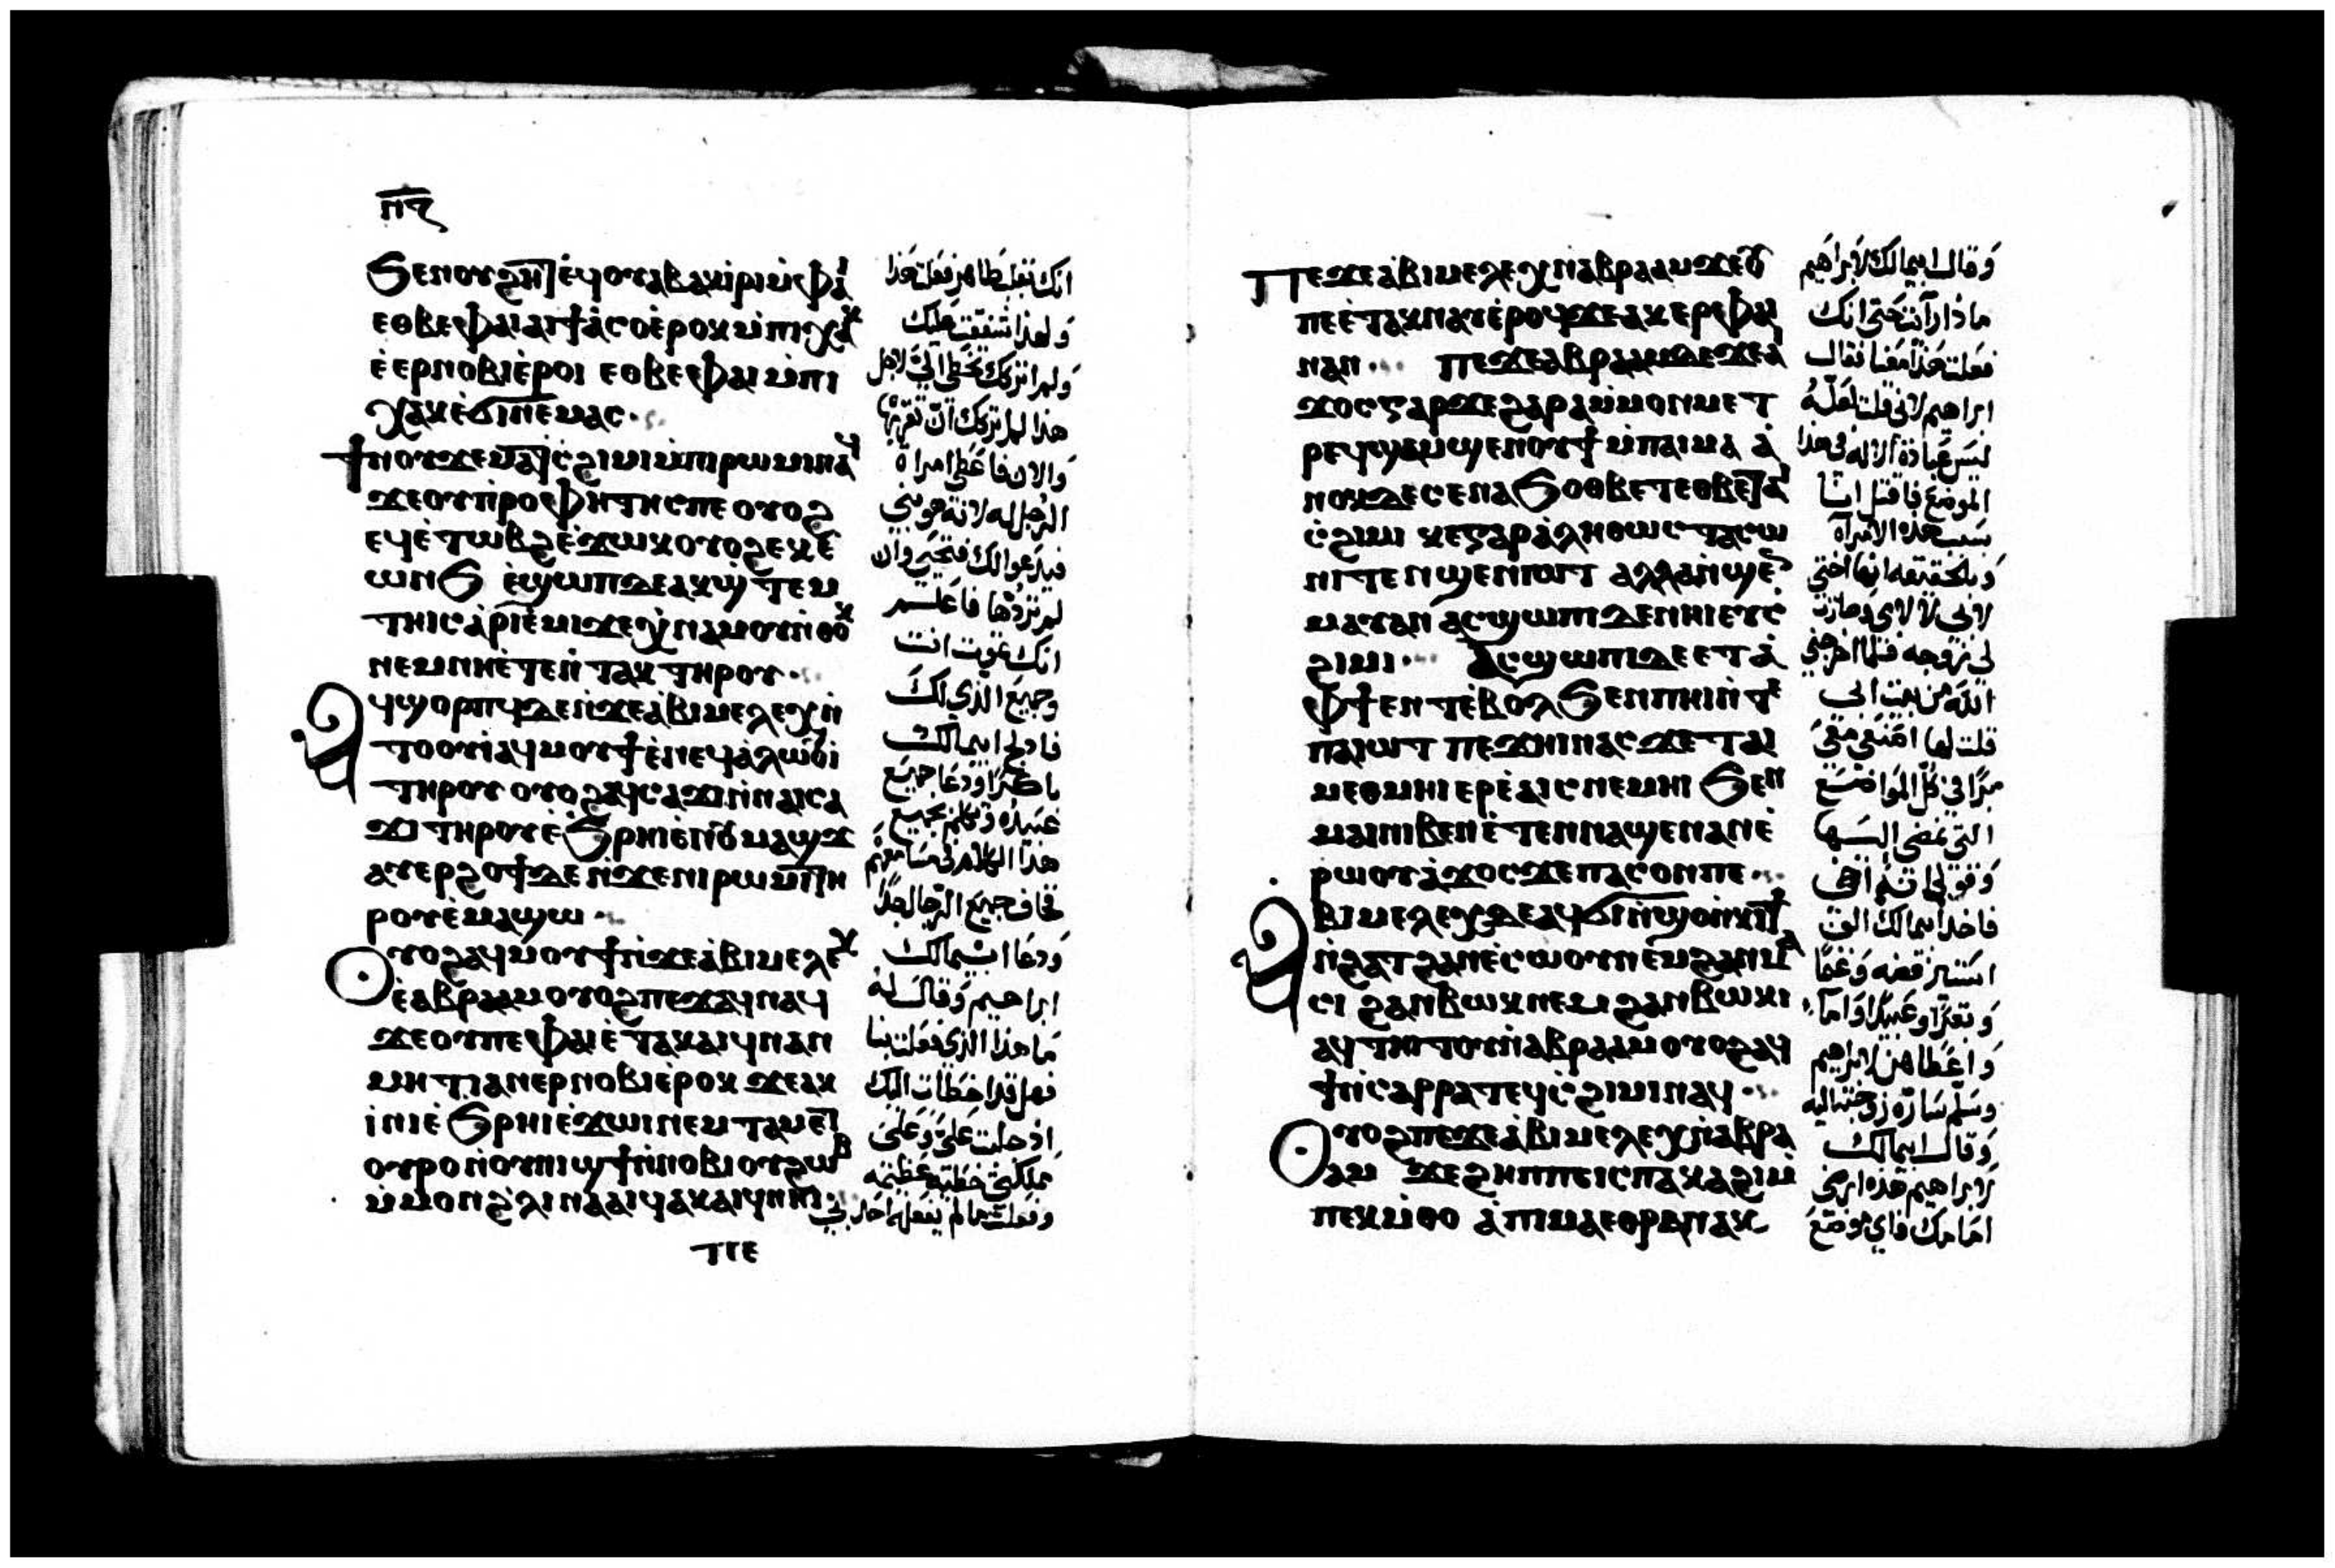 ⲡⲋ
ϧⲉⲛⲟⲩϩⲏⲧ ⲉϥⲟⲩⲁⲃ ⲁⲕⲓⲣⲓ ⲙⲫⲁⲓ
ⲉⲑⲃⲉⲫⲁⲓ ⲁⲓϯⲁⲥⲟ ⲉⲣⲟⲕ ⲙⲡⲓⲭⲁⲕ
ⲉⲉⲣⲛⲟⲃⲓ ⲉⲣⲟⲓ ⲉⲑⲃⲉⲫⲁⲓ ⲙⲡⲓ
ⲭⲁⲕ ⲉϭⲓⲛⲉⲙⲁⲥ
ϯⲛⲟⲩ ϫⲉ ⲙⲁ ⲧⲥϩⲓⲙⲓ ⲙⲡⲓⲣⲱⲙⲓ ⲛⲁϥ
ϫⲉ ⲟⲩⲡⲣⲟⲫⲏⲧⲏⲥ ⲡⲉ ⲟⲩⲟϩ
ⲉϥⲉⲧⲱⲃϩ ⲉϫⲱⲕ ⲟⲩⲟϩ ⲉⲕⲉ
ⲱⲛϧ ⲉϣⲱⲡ ⲇⲉ ⲁⲕϣⲧⲉⲙ
ⲧⲏⲓⲥ ⲁⲣⲓⲉⲙⲓ ϫⲉ ⲭⲛⲁⲙⲟⲩ ⲛⲑⲟⲕ
ⲛⲉⲙ ⲛⲏ ⲉⲧⲉ ⲛⲧⲁⲕ ⲧⲏⲣⲟⲩ
ⲁϥϣⲟⲣⲡϥ ⲇⲉ ⲛϫⲉ ⲁⲃⲓⲙⲉⲗⲉⲭ ⲛ
ⲧⲟⲟⲩⲓ ⲁϥⲙⲟⲩϯ ⲉⲛⲉϥⲁⲗⲱⲟⲩⲓ
ⲧⲏⲣⲟⲩ ⲟⲩⲟϩ ⲁϥⲥⲁϫⲓ ⲛⲛⲁⲓⲥⲁ
ϫⲓ ⲧⲏⲣⲟⲩ ⲉϧⲣⲏⲓ ⲉⲛⲟⲩⲙⲁϣϫ
ⲁⲩⲉⲣϩⲟϯ ⲇⲉ ⲛϫⲉ ⲛⲓⲣⲱⲙⲓ ⲧⲏ
ⲣⲟⲩ ⲉⲙⲁϣⲱ
ⲟⲩⲟϩ ⲁϥⲙⲟⲩϯ ⲛϫⲉ ⲁⲃⲓⲙⲉⲗⲉⲭ
ⲉⲁⲃⲣⲁⲁⲙ ⲟⲩⲟϩ ⲡⲉϫⲁϥ ⲛⲁϥ
ϫⲉ ⲟⲩ ⲡⲉ ⲫⲁⲓ ⲉⲧⲁⲕⲁⲓϥ ⲛⲁⲛ
ⲙⲏⲧⲓ ⲁⲛⲉⲣⲛⲟⲃⲓ ⲉⲣⲟⲕ ϫⲉ ⲁⲕ
ⲓⲛⲓ ⲉϧⲣⲏⲓ ⲉϫⲱⲓ ⲛⲉⲙ ⲧⲁⲙⲉⲧ
ⲟⲩⲣⲟ ⲛⲟⲩⲛⲓϣϯ ⲛⲛⲟⲃⲓ ⲟⲩϩⲱⲃ
ⲙⲙⲟⲛ ϩⲗⲓ ⲛⲁⲁⲓϥ ⲁⲕⲁⲓϥ ⲛⲏⲓ
ⲡⲉ
انك بقلب طاهر فعلت هذا
ولهذا شفقت عليك
ولم اتركك تخطى الى لاجل
هذا لم اتركك ان تقربها
والان فاعطى امراة
الرجل له لانه هو نبى
فيدعوا لك فتحيى وان
لم تردها فاعلم
انك تموت انت
وجميع الذى لك
فادلج ابيمالك
باكرا ودعا جميع
عبيده وتكلم بجميع
هذا الكلام فى مسامعهم
فخاف جميع الرجال جدا
ودعا ابيمالك
ابراهيم وقال له
ما هذا الذى فعلت بنا
فهل قد اخطات اليك
اذ جلبت على وعلى
مملكتى خطية عظيمة
وفعلت بى ما لم يفعله احد
ⲡⲉϫⲉ ⲁⲃⲓⲙⲉⲗⲉⲭ ⲛⲁⲃⲣⲁⲁⲙ ϫⲉ ⲟⲩ
ⲡⲉ ⲉⲧⲁⲕⲛⲁⲩ ⲉⲣⲟϥ ϫⲉ ⲁⲕⲉⲣ ⲫⲁⲓ
ⲛⲁⲛ ⲡⲉϫⲉ ⲁⲃⲣⲁⲁⲙ ⲇⲉ ϫⲉ ⲁⲓ
ϫⲟⲥ ⲅⲁⲣ ϫⲉ ϩⲁⲣⲁ ⲙⲙⲟⲛ ⲙⲉⲧ
ⲣⲉϥϣⲉⲙϣⲉⲛⲟⲩϯ ⲙⲡⲁⲓⲙⲁ ⲁ
ⲛⲟⲕ ⲇⲉ ⲥⲉⲛⲁϧⲟⲑⲃⲉⲧ ⲉⲑⲃⲉ ⲧⲁ
ⲥϩⲓⲙⲓ ⲕⲉ ⲅⲁⲣ ⲁⲗⲏⲑⲱⲥ ⲧⲁⲥⲱ
ⲛⲓ ⲧⲉ ⲛϣⲉⲛⲓⲱⲧ ⲁⲗⲗⲁ ⲛϣⲉⲛ
ⲙⲁⲩ ⲁⲛ ⲁⲥϣⲱⲡⲓ ⲇⲉ ⲛⲏⲓ ⲉⲩⲥ
ϩⲓⲙⲓ ⲁⲥϣⲱⲡⲓ ⲇⲉ ⲉⲧⲁ
ⲫϯ ⲉⲛⲧ ⲉⲃⲟⲗ ϧⲉⲛ ⲡⲏⲓ ⲛⲧⲉ
ⲡⲁⲓⲱⲧ ⲡⲉϫⲏⲓ ⲛⲁⲥ ϫⲉ ⲧⲁⲓ
ⲙⲉⲑⲙⲏⲓ ⲉⲣⲉⲁⲓⲥ ⲛⲉⲙⲏⲓ ϧⲉⲛ
ⲙⲁⲓ ⲛⲓⲃⲉⲛ ⲉⲧⲉⲛⲛⲁϣⲉⲛⲁⲛ ⲉ
ⲣⲱⲟⲩ ⲁϫⲟⲥ ϫⲉ ⲡⲁⲥⲟⲛ ⲡⲉ
ⲁⲃⲓⲙⲉⲗⲉⲭ ⲇⲉ ⲁϥϭⲓ ⲛϣⲟ ⲛⲕⲓϯ
ⲛϩⲁⲧ ϩⲁⲛⲉⲥⲱⲟⲩ ⲛⲉⲙ ϩⲁⲛⲙⲁ
ⲥⲓ ϩⲁⲛⲃⲱⲕ ⲛⲉⲙ ϩⲁⲛⲃⲱⲕⲓ
ⲁϥⲧⲏⲓⲧⲟⲩ ⲛⲁⲃⲣⲁⲁⲙ ⲟⲩⲟϩ ⲁϥ
ϯ ⲛⲥⲁⲣⲣⲁ ⲧⲉϥⲥϩⲓⲙⲓ ⲛⲁϥ
ⲟⲩⲟϩ ⲡⲉϫⲉ ⲁⲃⲓⲙⲉⲗⲉⲭ ⲛⲁⲃⲣⲁ
ⲁⲙ ϫⲉ ϩⲏⲡⲡⲉ ⲓⲥ ⲡⲁⲕⲁϩⲓ ⲙ
ⲡⲉⲕⲙⲑⲟ ⲁ ⲡⲓⲙⲁ ⲉⲑⲣⲁⲛⲁⲕ
وقال ابيمالك لابراهيم
ماذا رايت حتى انك
فعلت هذا معنا فقال
ابراهيم لانى قلت لعله
ليس عبادة الاله فى هذا
الموضع فاقتل انا
بسبب هذه الامراة
وبالحقيقه انها اختى
لابى لا لامى وصارت
لى زوجه فلما اخرجنى
الله من بيت ابى
قلت لها اصنعى معى
برا فى كل المواضع
التى نمضى اليها
وقولى انه اخى
فاخذ ابيمالك الف
استير فضه وغنما
وبقرا وعبيدا واماء
واعطاهن لابراهيم
وسلم ساره زوجته اليه
وقال ابيمالك
لابراهيم هذه ارضى
امامك فاى موضع